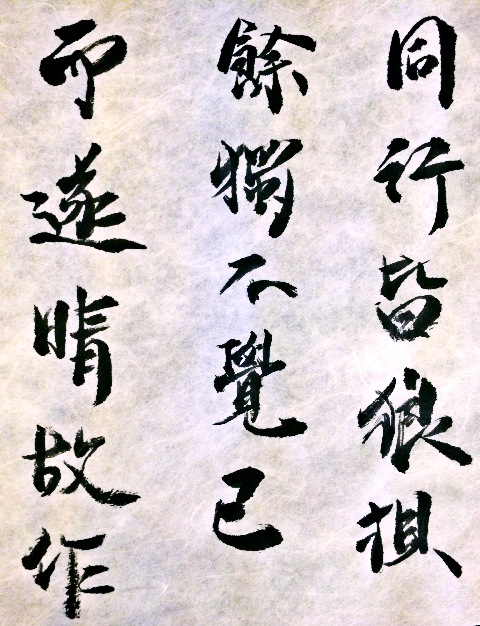 同行皆狼狽
餘獨不覺已
而遂晴故作